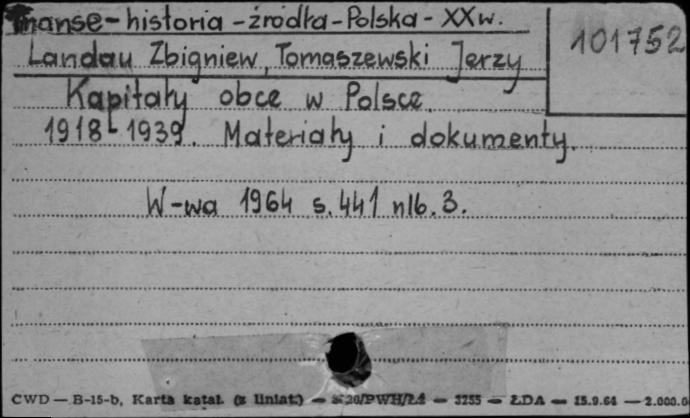 Finanse - historia - źródła - Polska - XX w.
101752
Landau Zbigniew, Tomaszewski Jerzy
Kapitały obce w Polsce
1918-1939. Materiały i dokumenty.
W-wa 1964 s. 441 nlb. 3.
CWD — B-15-b, Karta katal. (z liniat.) — 20/PWH/Łż — 3255 — ŁDA — 15.9.64 — 2.000.0